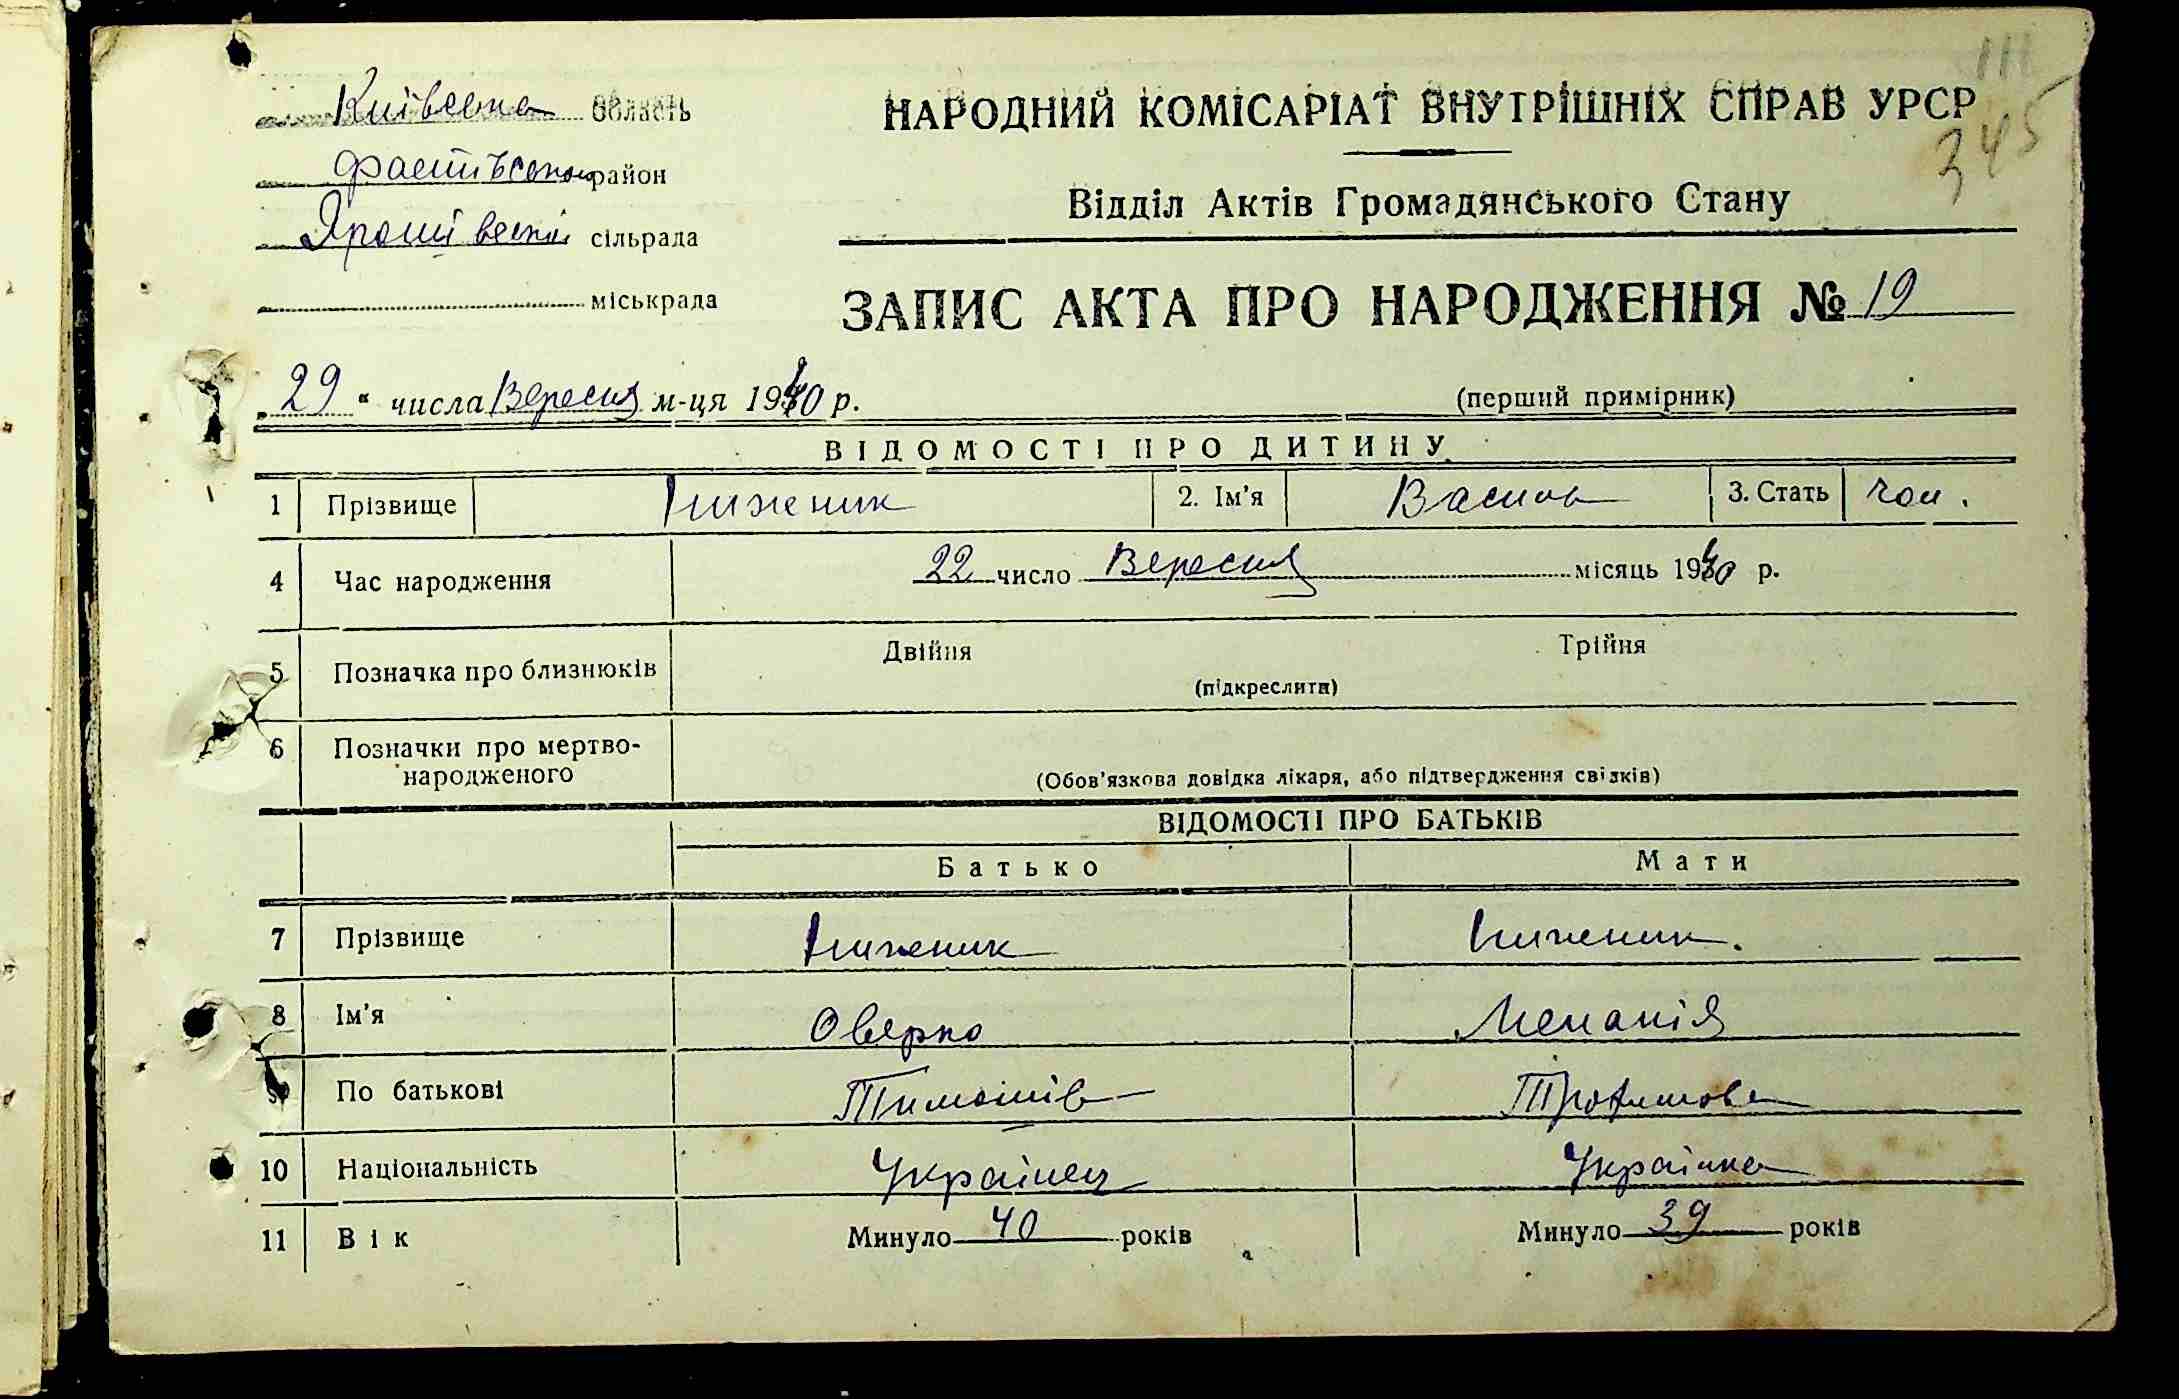 111
Київська область
НАРОДНИЙ КОМІСАРІАТ ВНУТРІШНІХ СПРАВ УРСР
345
Фастівський район
Відділ Актів Громадянського Стану
сільрада
міськрада
ЗАПИС АКТА ПРО НАРОДЖЕННЯ № 19
29 " числа Вересня м-ця 1940 р.
(перший примірник)
ВІДОМОСТІ ПРО ДИТИНУ
1 Прізвище Ниженик 2. Ім'я Василь 3. Стать чол.
4 Час народження 22 число Вересня місяць 1940 р.
5 Позначка про близнюків Двійня Трійня
(підкреслити)
6 Позначки про мертво-
народженого
(Обов'язкова довідка лікаря, або підтвердження свідків)
ВІДОМОСТІ ПРО БАТЬКІВ
Батько Мати
7 Прізвище Ниженик Ниженик.
8 Ім'я Оверко Меланія
9 По батькові Тимошів Трохимова
10 Національність Українец Українка
11 Вік Минуло 40 років Минуло 39 років